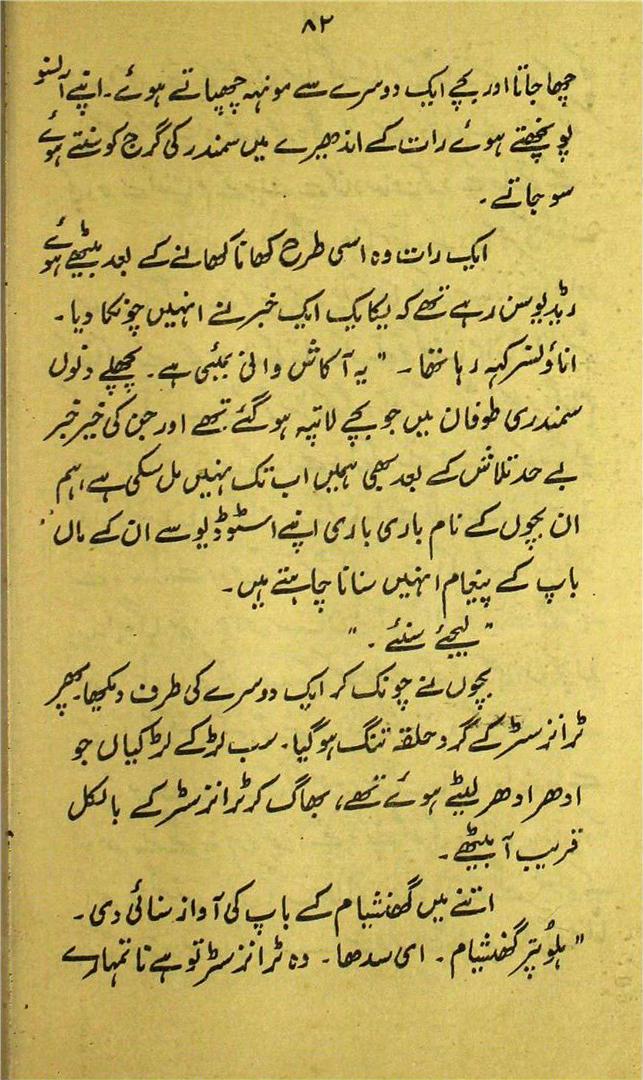 ۸۲
چھا جاتا اور بچے ایک دوسرے سے مونہہ چھپاتے ہوئے۔ اپنے آنسو
پونچھتے ہوئے رات کے اندھیرے میں سمندر کی گرج کو سنتے ہوئے
سو جاتے۔
ایک رات وہ اسی طرح کھانا کھانے کے بعد بیٹھے ہوئے
ریڈیو سن رہے تھے کہ یکایک ایک خبر نے انہیں چونکا دیا۔
اناؤنسر کہہ رہا تھا۔ "یہ آکاش وانی بمبئی ہے۔ پچھلے دنوں
سمندری طوفان میں جو بچے لاپتہ ہو گئے تھے اور جن کی خیر خبر
بے حد تلاش کے بعد بھی ہمیں اب تک نہیں مل سکی ہے، ہم
ان بچوں کے نام باری باری اپنے اسٹوڈیو سے ان کے ماں
باپ کے پیغام انہیں سنانا چاہتے ہیں۔
"لیجئے سنئے۔"
بچوں نے چونک کر ایک دوسرے کی طرف دیکھا۔ پھر
ٹرانزسٹر کے گرد حلقہ تنگ ہو گیا۔ سب لڑکے لڑکیاں جو
ادھر ادھر لیٹے ہوئے تھے، بھاگ کر ٹرانزسٹر کے بالکل
قریب آ بیٹھے۔
اتنے میں گھنشیام کے باپ کی آواز سنائی دی۔
"ہلو پتر گھنشیام۔ ای سدھا۔ وہ ٹرانزسٹر تو ہے نا تمہارے